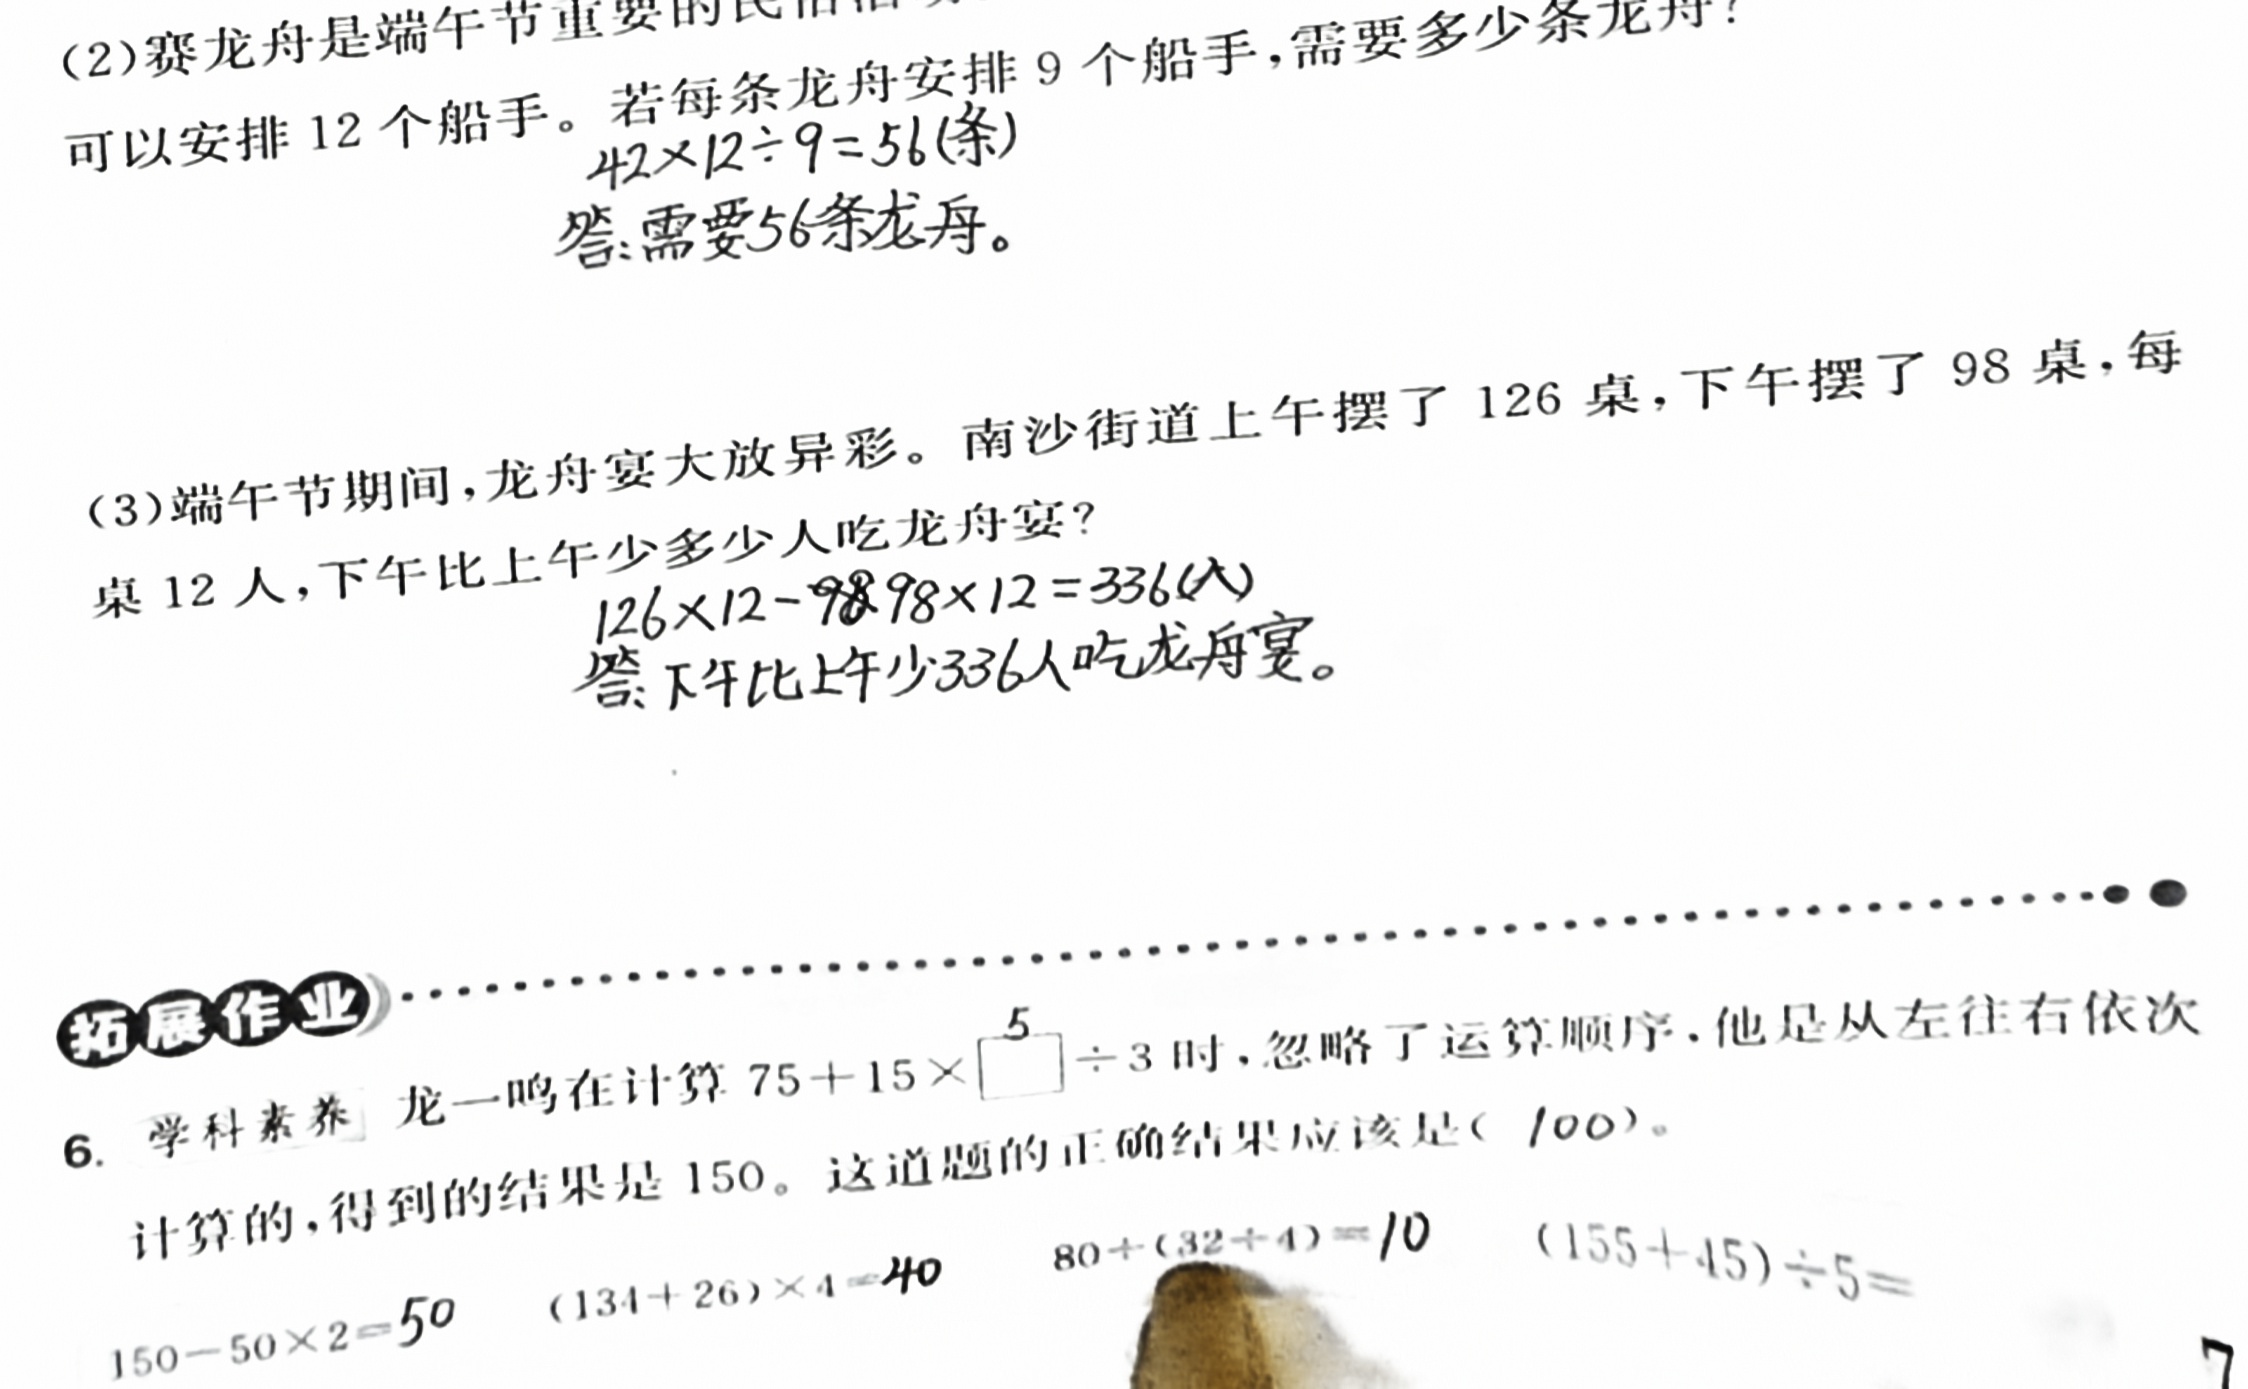 (2)赛龙舟是端午节重要的民俗
可以安排 12 个船手。若每条龙舟安排 9 个船手,需要多少条龙舟?
42×12÷9=56(条)
答:需要56条龙舟。
(3)端午节期间,龙舟宴大放异彩。南沙街道上午摆了 126 桌,下午摆了 98 桌,每
桌 12 人,下午比上午少多少人吃龙舟宴?
126×12-98×12=336(人)
答:下午比上午少336人吃龙舟宴。
拓展作业
6. 学科素养 龙一鸣在计算 75+15×5÷3 时,忽略了运算顺序,他是从左往右依次
计算的,得到的结果是 150。这道题的正确结果应该是( 100 )。
150-50×2=50 (134+26)×4=40 80÷(32÷4)=10 (155+45)÷5=
7